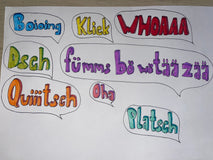 Boioing Klick WHOAAA
Dsch fümms bö wö tää zää
Quiiitsch Oha
Platsch